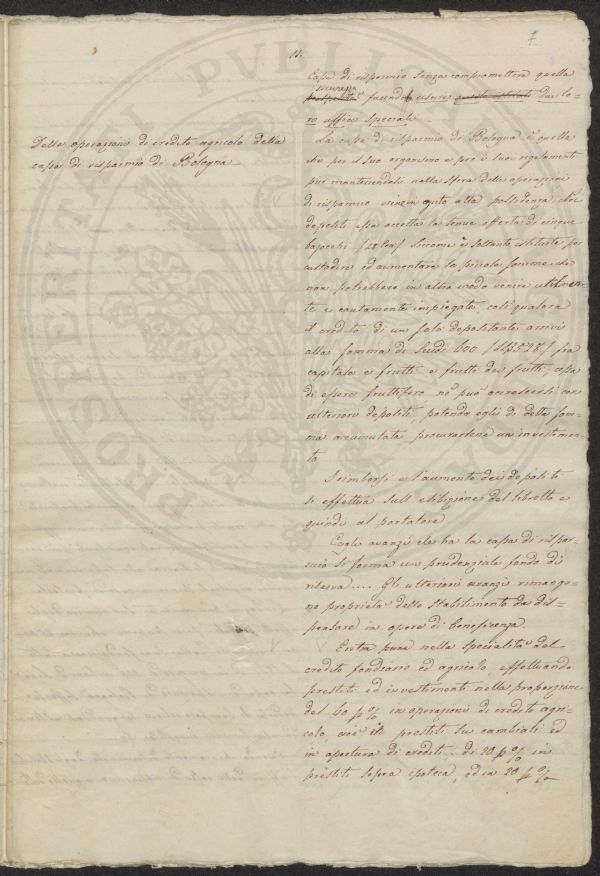 7.
11.
Delle operazioni di credito agricolo della
cassa di risparmio di Bologna
Casse di risparmio senza compromettere quella
sicurezza
prosperità facendole uscire questo istituto dai lo-
ro uffici speciali.
La cassa di risparmio di Bologna è quella
che per il suo organismo e per i suoi regolamenti
pur mantenendosi nella sfera delle operazioni
di risparmio viene in ajuto alla possidenza. Nei
depositi essa accetta la tenue offerta di cinque
bajocchi Siccome è soltanto istituita per
custodire ed aumentare le piccole somme che
non potrebbero in altro modo venire utilmen-
te e cautamente impiegate, così qualora
il credito di un solo depositante arrivi
alla somma di Scudi 600 fra
capitale e frutti e frutti dei frutti, cessa
di essere fruttifero nè può accrescersi con
ulteriori depositi, potendo egli di detta som-
ma accumulata procurarsene un investimen-
to
I rimborsi e l'aumento dei depositi
si effettua sull'esibizione del libretto e
quindi al portatore
Cogli avanzi che ha la cassa di rispar-
mio si forma un prudenziale fondo di
riserva.... Gli ulteriori avanzi rimango-
no proprietà dello Stabilimento da dis-
pensare in opere di beneficenza.
Entra pure nella specialità del
credito fondiario ed agricolo, effettuando
prestiti ed investimenti nella proporzione
del 60 p % in operazioni di credito agri-
colo, cioè prestiti su cambiali ed
in apertura di crediti.. di 20 p % in
prestiti sopra ipoteca, ed in 20 p %